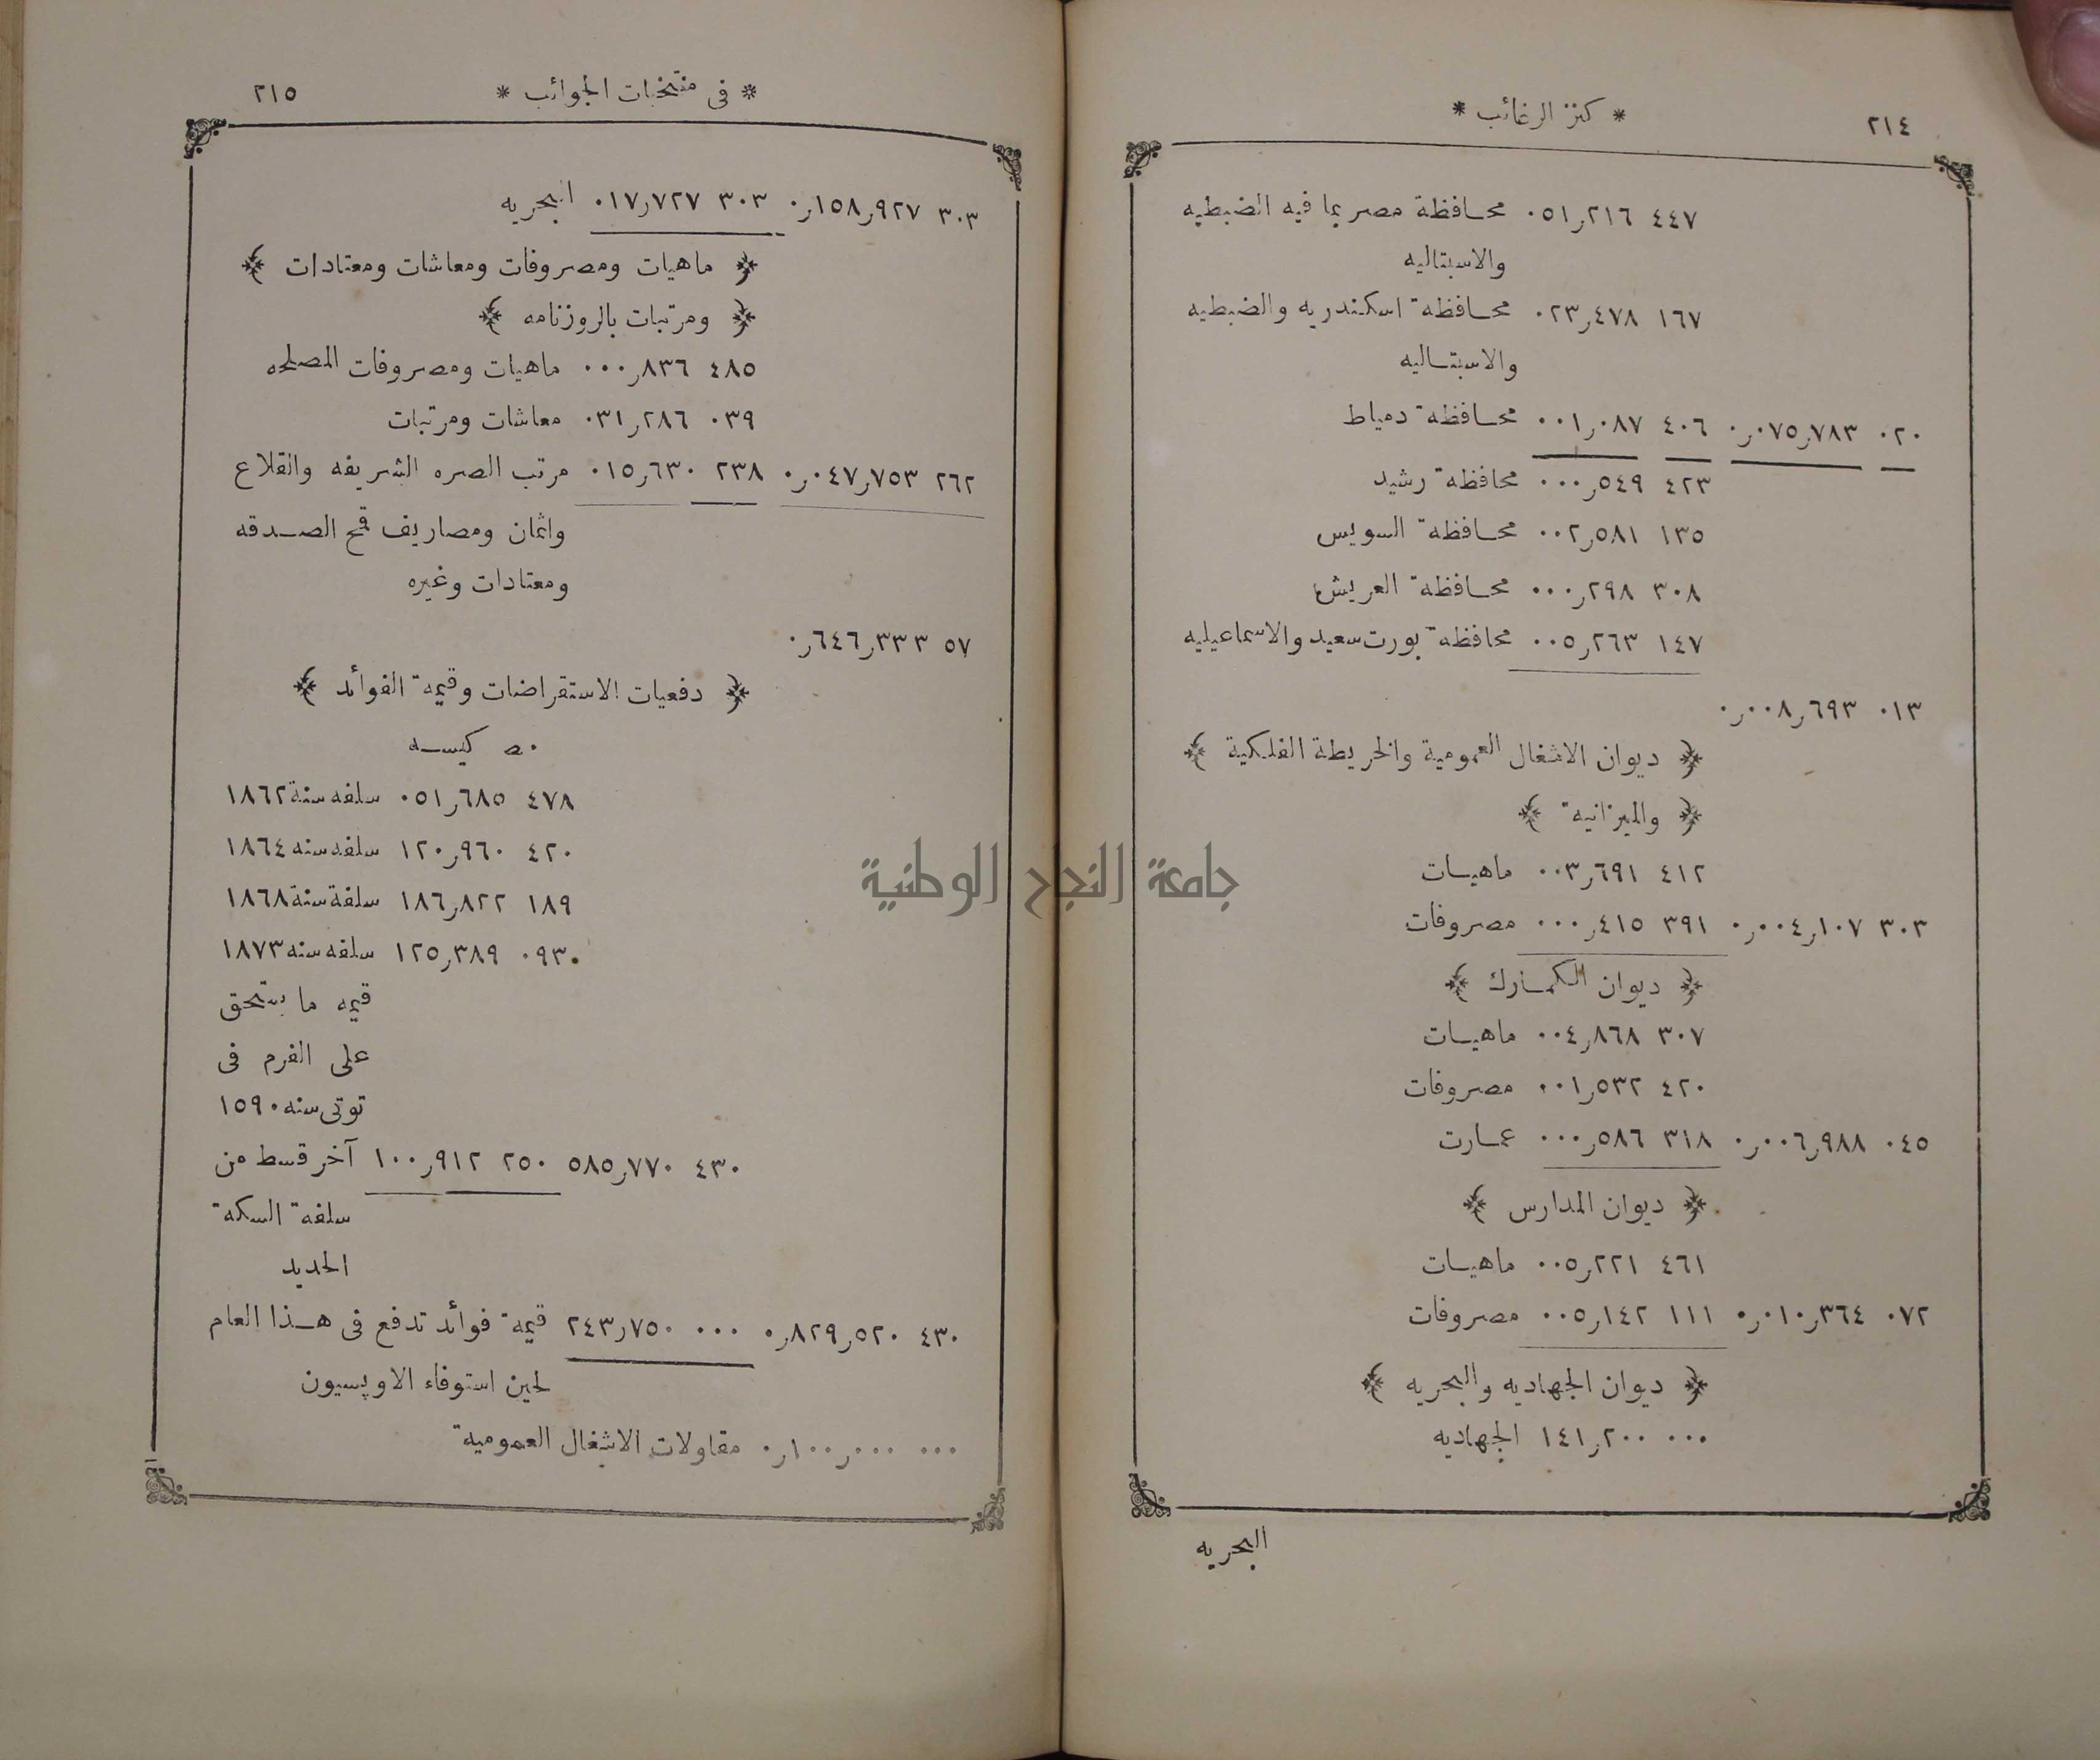 ٢١٤ * كنز الرغائب *
٤٤٧ ٠٥١٫٢١٦ محافظة مصر بما فيه الضبطيه
والاسبتاليه
١٦٧ ٠٢٣٫٤٧٨ محافظة اسكندريه والضبطيه
والاسبتاليه
٠٢٠ ٠٫٠٧٥٫٧٨٣ ٤٠٦ ٠٠١٫٠٨٧ محافظة دمياط
٤٢٣ ٠٠٠٫٥٤٩ محافظة رشيد
١٣٥ ٠٠٢٫٥٨١ محافظة السويس
٣٠٨ ٠٠٠٫٢٩٨ محافظة العريش
١٤٧ ٠٠٥٫٢٦٣ محافظة بورت سعيد والاسماعيليه
٠١٣ ٠٫٠٠٨٫٦٩٣
﴿ ديوان الاشغال العمومية والخريطة الفلكية ﴾
﴿ والميزانية ﴾
٤١٢ ٠٠٣٫٦٩١ ماهيات
٣٠٣ ٠٫٠٠٤٫١٠٧ ٣٩١ ٠٠٠٫٤١٥ مصروفات
﴿ ديوان الكمارك ﴾
٣٠٧ ٠٠٤٫٨٦٨ ماهيات
٤٢٠ ٠٠١٫٥٣٢ مصروفات
٠٤٥ ٠٫٠٠٦٫٩٨٨ ٣١٨ ٠٠٠٫٥٨٦ عمارت
﴿ ديوان المدارس ﴾
٤٦١ ٠٠٥٫٢٢١ ماهيات
٠٧٢ ٠٫٠١٠٫٣٦٤ ١١١ ٠٠٥٫١٤٢ مصروفات
﴿ ديوان الجهاديه والبحريه ﴾
٠٠٠ ١٤١٫٢٠٠ الجهاديه
البحريه
* فى منتخبات الجوائب * ٢١٥
٣٠٣ ٠٫١٥٨٫٩٢٧ ٣٠٣ ٠١٧٫٧٢٧ البحريه
﴿ ماهيات ومصروفات ومعاشات ومعتادات ﴾
﴿ ومرتبات بالروزنامه ﴾
٤٨٥ ٠٠٠٫٨٣٦ ماهيات ومصروفات المصلحه
٠٣٩ ٠٣١٫٢٨٦ معاشات ومرتبات
٢٦٢ ٠٫٠٤٧٫٧٥٣ ٢٣٨ ٠١٥٫٦٣٠ مرتب الصره الشريفه والقلاع
واثمان ومصاريف قمح الصدقه
ومعتادات وغيره
٥٧ ٠٫٦٤٦٫٣٣٣
﴿ دفعيات الاستقراضات وقيمة الفوائد ﴾
كيسه
٤٧٨ ٠٥١٫٦٨٥ سلفه سنة ١٨٦٢
٤٢٠ ١٢٠٫٩٦٠ سلفه سنه ١٨٦٤
١٨٩ ١٨٦٫٨٢٢ سلفة سنة ١٨٦٨
٠٩٣ ١٢٥٫٣٨٩ سلفه سنه ١٨٧٣
قيمه ما يستحق
على الفرم فى
توتى سنه ١٥٩٠
٤٣٠ ٥٨٥٫٧٧٠ ٢٥٠ ١٠٠٫٩١٢ آخر قسط من
سلفة السكة
الحديد
٤٣٠ ٠٫٨٢٩٫٥٢٠ ٠٠٠ ٢٤٣٫٧٥٠ قيمة فوائد تدفع فى هذا العام
لحين استوفاء الاوپسيون
٠٠٠ ٠٫١٠٠٫٠٠٠ مقاولات الاشغال العمومية
جامعة النجاح الوطنية